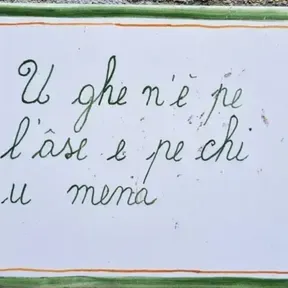 U ghe n'è pe
l'âse e pe chi
u mena